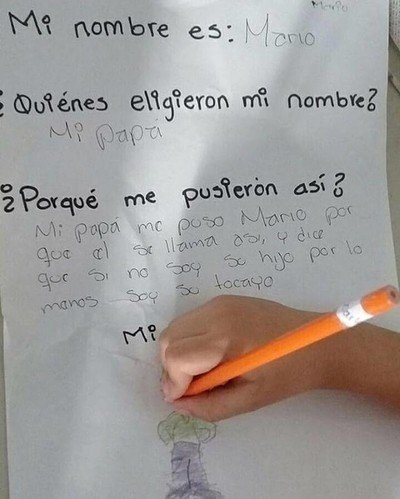 Mario
Mi nombre es: Mario
¿Quiénes eligieron mi nombre?
Mi papá
¿Porqué me pusierón así?
Mi papá me puso Mario por
que el se llama así, y dice
que si no soy su hijo por lo
manos soy su tocayo
Mi